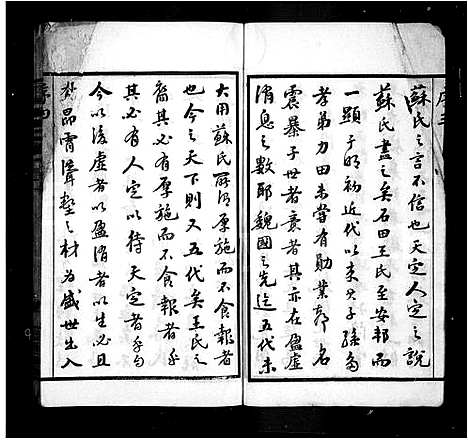 序三
蘇氏之言不信也天定人定之說
蘇氏盡之矣石田王氏至安邦而
一顯于明初近代以來其子孫多
孝弟力田未嘗有勛業節名
震暴于世者賣者其亦在盈虛
消息之數耶魏國之先迄五代未
大用蘇氏所謂厚施而不食報者
也今之天下則又五代矣王氏之
裔其必有厚施而不食報者乎
其必有人定以待天定者乎自
今以後虛者以盈消者以生必且
之材為盛世出入
序四